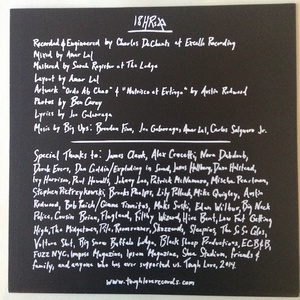 18HRS
Recorded & Engineered by Charles DeChants at Excello Recording
Mixed by Amar Lal
Mastered by Sarah Register at The Lodge
Layout by Amar Lal
Artwork "Ordo Ab Chao" & "Nutrisco et Extingo" by Austin Redwood
Photos by Ben Carey
Lyrics by Joe Galarraga
Music by Big Ups: Brendan Finn, Joe Galarraga, Amar Lal, Carlos Salguero Jr.
Special Thanks to: James Clark, Alex Crocetti, Nora Dabdoub,
Derek Evers, Dan Goldin/Exploding in Sound, James Hallbring, Dave Halstead,
Ivy Harrison, Paul Howells, Johnny Leo, Patrick McNamara, Mischa Pearlman,
Stephen Pietrzykowski, Brooks Phelps, Lily Pollack, Mike Quigley, Austin
Redwood, Bob Reich/ Tiimatus, Maks Suski, Edan Wilber, Big Neck
Police, Cousin Brian, Flagland, Filthy Wizard, Hive Bent, Low Fat Getting
High, The Meatmen, Pile, Sleepies, The So So Glos,
Vulture Shit, Big Snow Buffalo Lodge, Black Sheep Productions, ECB&B,
Fuzz NYC, Impose Magazine, Ipsum Magazine, Shea Stadium, friends &
family, and anyone who has ever supported us. Tough Love, 2014.
www.toughloverecords.com